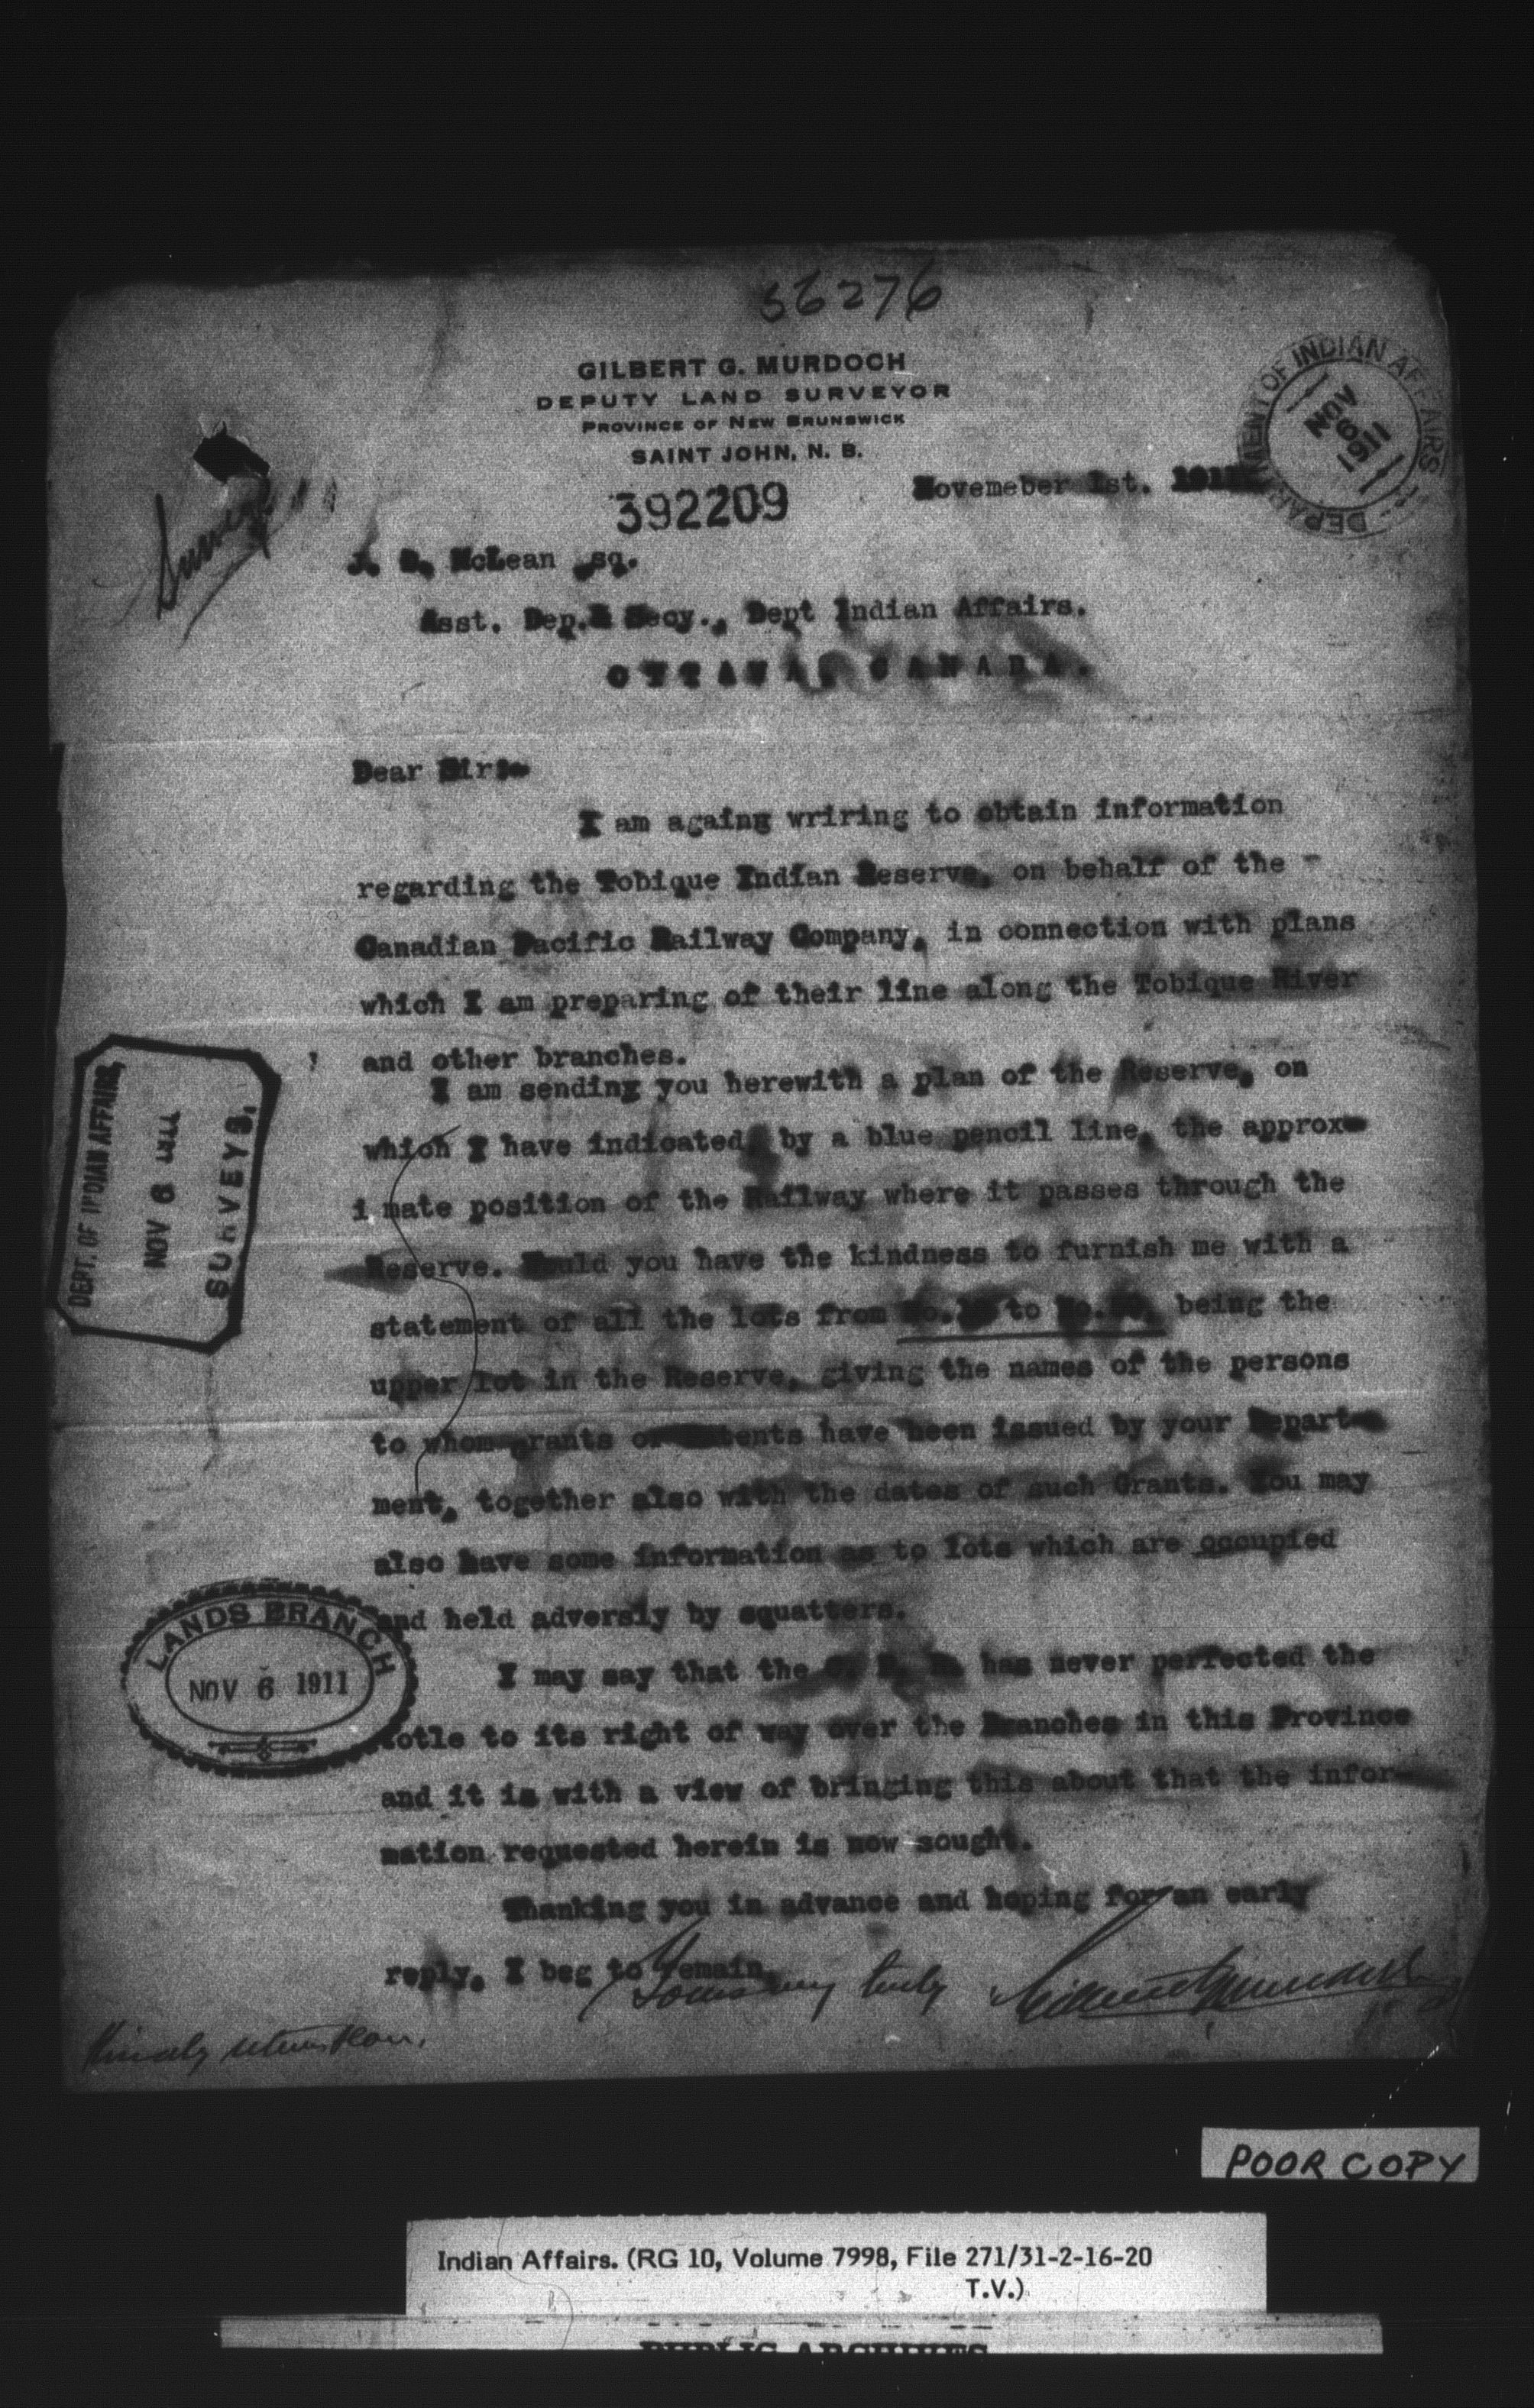 56276
GILBERT G. MURDOCH
DEPUTY LAND SURVEYOR
PROVINCE OF NEW BRUNSWICK
SAINT JOHN, N. B.
DEPARTMENT OF INDIAN AFFAIRS
NOV
6
1911
392209
Novemeber 1st. 1911
J. D. McLean Esq.
Asst. Dep.& Secy., Dept Indian Affairs.
OTTAWA, CANADA.
Dear Sir:-
I am againg wriring to obtain information
regarding the Tobique Indian Reserve, on behalf of the -
Canadian Pacific Railway Company, in connection with plans
which I am preparing of their line along the Tobique River
and other branches.
I am sending you herewith a plan of the Reserve, on
which I have indicated by a blue pencil line, the approx-
i mate position of the Railway where it passes through the
Reserve. Would you have the kindness to furnish me with a
statement of all the lots from No. to No. being the
upper lot in the Reserve, giving the names of the persons
to whom grants or Patents have been issued by your Depart-
ment, together also with the dates of such Grants. You may
also have some information as to lots which are occupied
and held adversly by squatters.
I may say that the C. P. R. has never perfected the
totle to its right of way over the Branches in this Province
and it is with a view of bringing this about that the infor-
mation requested herein is now sought.
Thanking you in advance and hoping for an early
reply, I beg to remain,
Yours very truly Gilbert G Murdoch
Kindly return plan.
DEPT. OF INDIAN AFFAIRS,
NOV 6 1911
SURVEYS,
LANDS BRANCH
NOV 6 1911
POOR COPY
Indian Affairs. (RG 10, Volume 7998, File 271/31-2-16-20
T.V.)
PUBLIC ARCHIVES